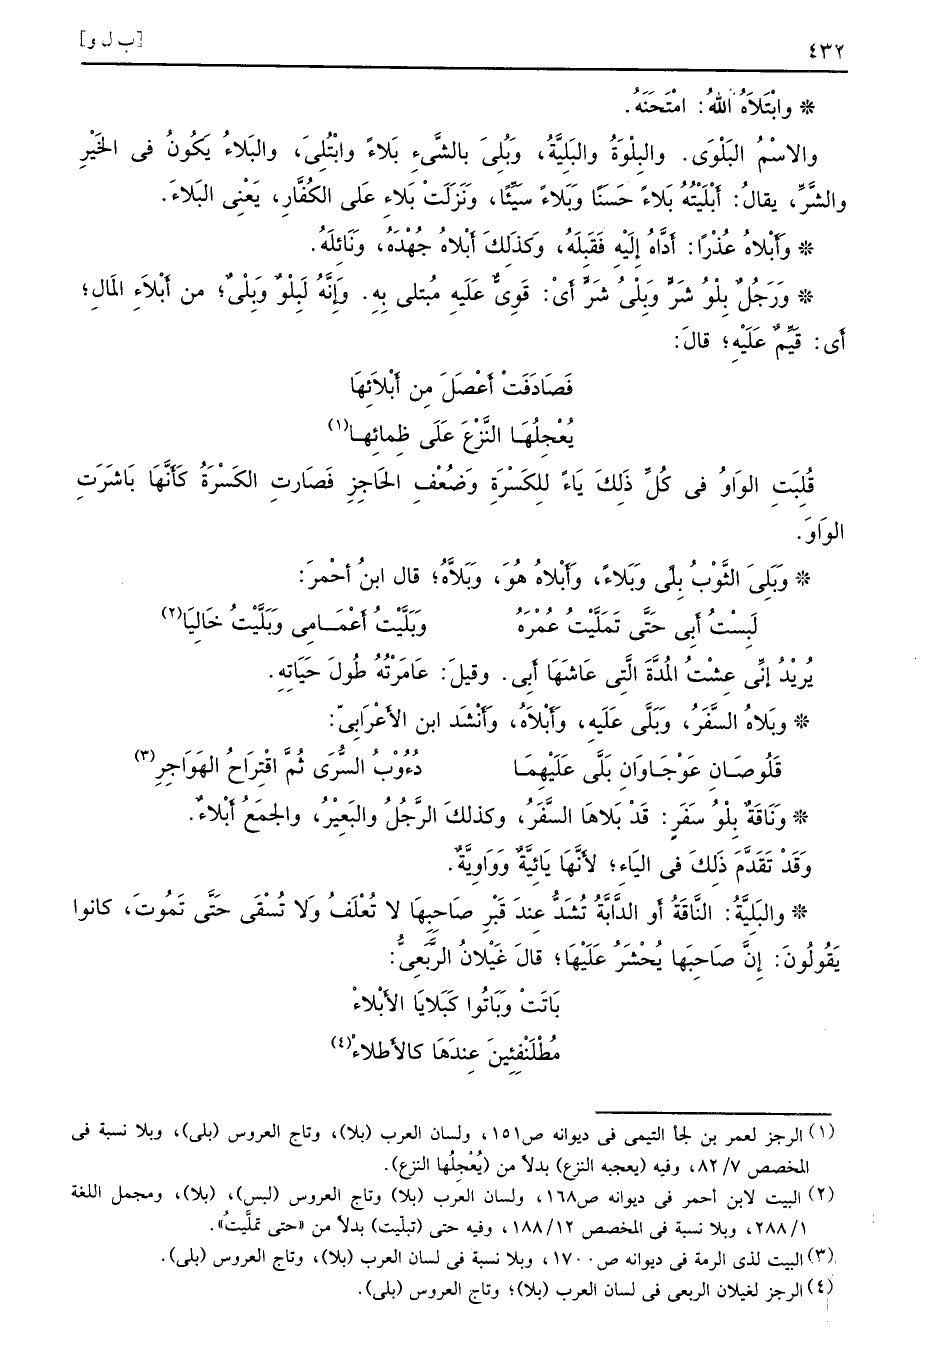 ٤٣٢
[ب ل و]
* وابْتَلاَهُ اللهُ: امْتَحَنَهُ.
والاسْمُ البَلْوَى. والبِلْوَةُ والبَلِيَّةُ، وَبُلِىَ بالشَّىءِ بَلاءً وابْتُلِىَ، والبَلاءُ يَكُونُ فى الخَيْرِ
والشَّرِّ، يقالُ: أَبْلَيْتُهُ بَلاءً حَسَنًا وَبَلاءً سَيِّئًا، ونَزَلَتْ بَلاءِ علَى الكُفَّارِ، يَعْنِى البَلاءَ.
* وأَبْلاهُ عُذْرًا: أَدَّاهُ إِلَيْهِ فَقَبِلَهُ، وكَذلكَ أَبْلاهُ جُهْدَهُ، ونَائلَهُ.
* ورَجُلٌ بِلْوُ شَرٍّ وَبِلْىُ شَرٍّ أىْ: قَوِىٌّ عَلَيهِ مُبتلى بِهِ. وإِنَّهُ لَبِلْوٌ وَبِلْىٌ؛ من أَبْلاَءِ المَالِ؛
أى: قَيِّمٌ عَلَيْهِ؛ قالَ:
فَصَادَفَتْ أَعْصَلَ مِن أَبْلاَئِهَا
يُعْجِلُهَـا النَّزْعَ عَلَى ظِمائِهـا(١)
قُلِبَتِ الوَاوُ فى كُلِّ ذَلِكَ يَاءً للكَسْرَةِ وَضُعْفِ الحَاجِزِ فَصَارتِ الكَسْرَةُ كَأَنَّهَا بَاشَرَتِ
الوَاوَ.
* وَبَلِىَ الثَّوْبُ بِلًى وَبَلاءً، وَأَبْلاهُ هُوَ، وَبَلاَّهُ؛ قال ابنُ أحْمرَ:
لَبِسْتُ أَبى حَتَّى تَمَلَّيْتُ عُمْرَهُ وَبَلَّيْتُ أَعْمَـامِى وَبَلَّيْتُ خَالِيَا(٢)
يُرِيْدُ إنِّى عشْتُ المُدَّةَ الَّتِى عَاشَهَا أَبى. وقيلَ: عَامَرْتُهُ طُولَ حَيَاتِهِ.
* وبَلاهُ السَّفَرُ، وَبَلَّى عَلَيهِ، وأَبْلاَهُ، وأَنْشَد ابن الأعْرَابِىّ:
قَلُوصَـانِ عَوْجَـاوَانِ بَلَّى عَلَيْهِمَـا دُءُوْبُ السُّرَى ثُمَّ اقْتِرَاحُ الهَوَاجِرِ(٣)
* ونَاقَةٌ بِلْوُ سَفَرٍ: قَدْ بَلاهَا السَّفَرُ، وكذلكَ الرَّجُلُ والبَعِيْرُ، والجَمْعُ أَبْلاءٌ.
وقَدْ تَقَدَّمَ ذَلكَ فى اليَاءِ؛ لأَنَّهَا يَائِيَّةٌ وَوَاوِيَّةٌ.
* والبَلِيَّةُ: النَّاقَةُ أو الدَّابَّةُ تُشَدُّ عِندَ قَبْرِ صَاحِبِهَا لا تُعْلَفُ وَلا تُسْقَى حَتَّى تَمُوتَ، كانوا
يَقُولُونَ: إِنَّ صَاحِبَها يُحْشَرُ عَلَيْهَا؛ قالَ غَيْلانُ الرَّبَعِىُّ:
بَاتَتْ وَبَاتُوا كَبَلايَا الأَبْلاءْ
مُطْلَنْفِئِينَ عِندَهَا كالأَطْلاءْ(٤)
(١) الرجز لعمر بن لجأ التيمى فى ديوانه ص١٥١، ولسان العرب (بلا)، وتاج العروس (بلى)، وبلا نسبة فى
المخصص ٧/ ٨٢، وفيه (يعجبه النزع) بدلاً من (يُعْجِلُها النزع).
(٢) البيت لابن أحمر فى ديوانه ص١٦٨، ولسان العرب (بلا) وتاج العروس (لبس)، (بلا)، ومجمل اللغة
١/ ٢٨٨، وبلا نسبة فى المخصص ١٢/ ١٨٨، وفيه حتى (تبلّيت) بدلاً من «حتى تملَّيتُ».
(٣) البيت لذى الرمة فى ديوانه ص١٧٠٠، وبلا نسبة فى لسان العرب (بلا)، وتاج العروس (بلى).
(٤) الرجز لغيلان الربعى فى لسان العرب (بلا)؛ وتاج العروس (بلى).